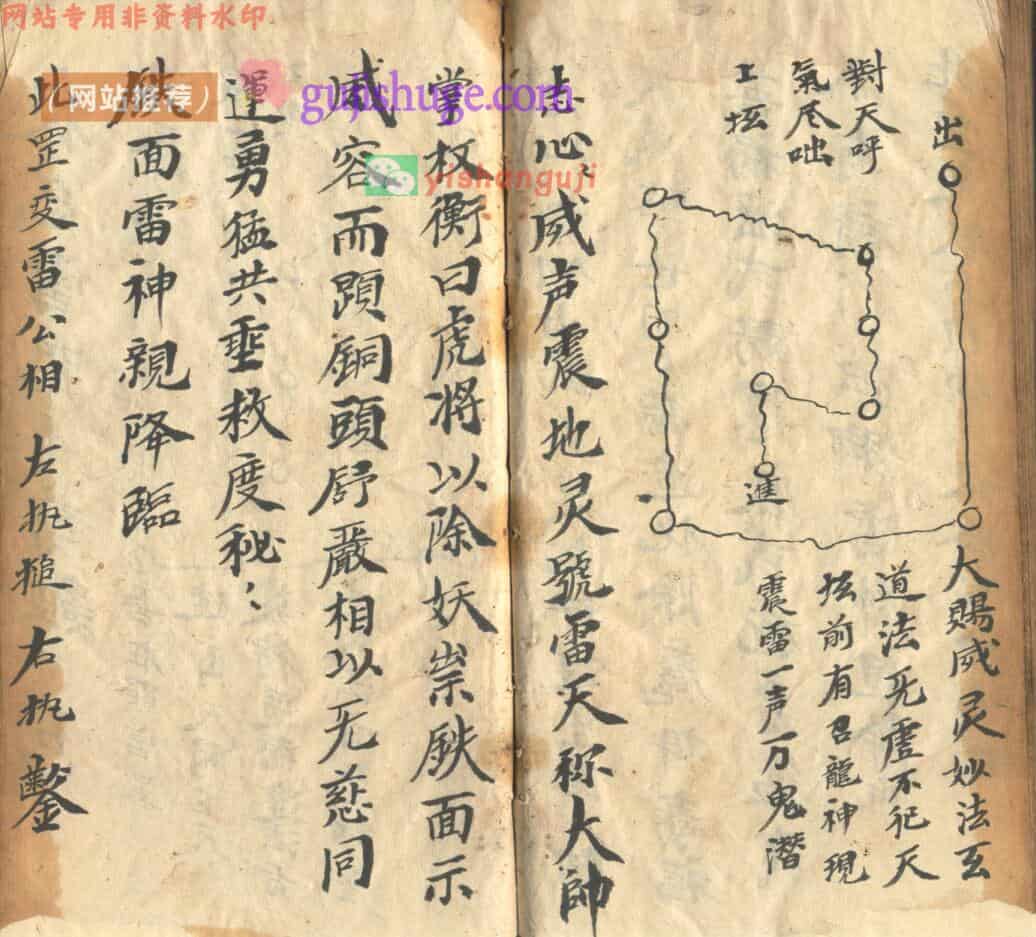 网站专用非资料水印
(网站推荐)
gujishuge.com
yishanguji
出
對天呼
氣尽咄
上坛
進
大賜威灵妙法玄
道法无虚不犯天
坛前有召龍神現
震雷一声万鬼潛
志心〻威声震地灵號雷天称大帥
掌权衡曰虎将以除妖祟鉄面示
威容而顕銅頭舒嚴相以无慈同
運勇猛共垂救度秘〻
鉄面雷神親降臨
此罡交雷公相 左执搥 右执鑿